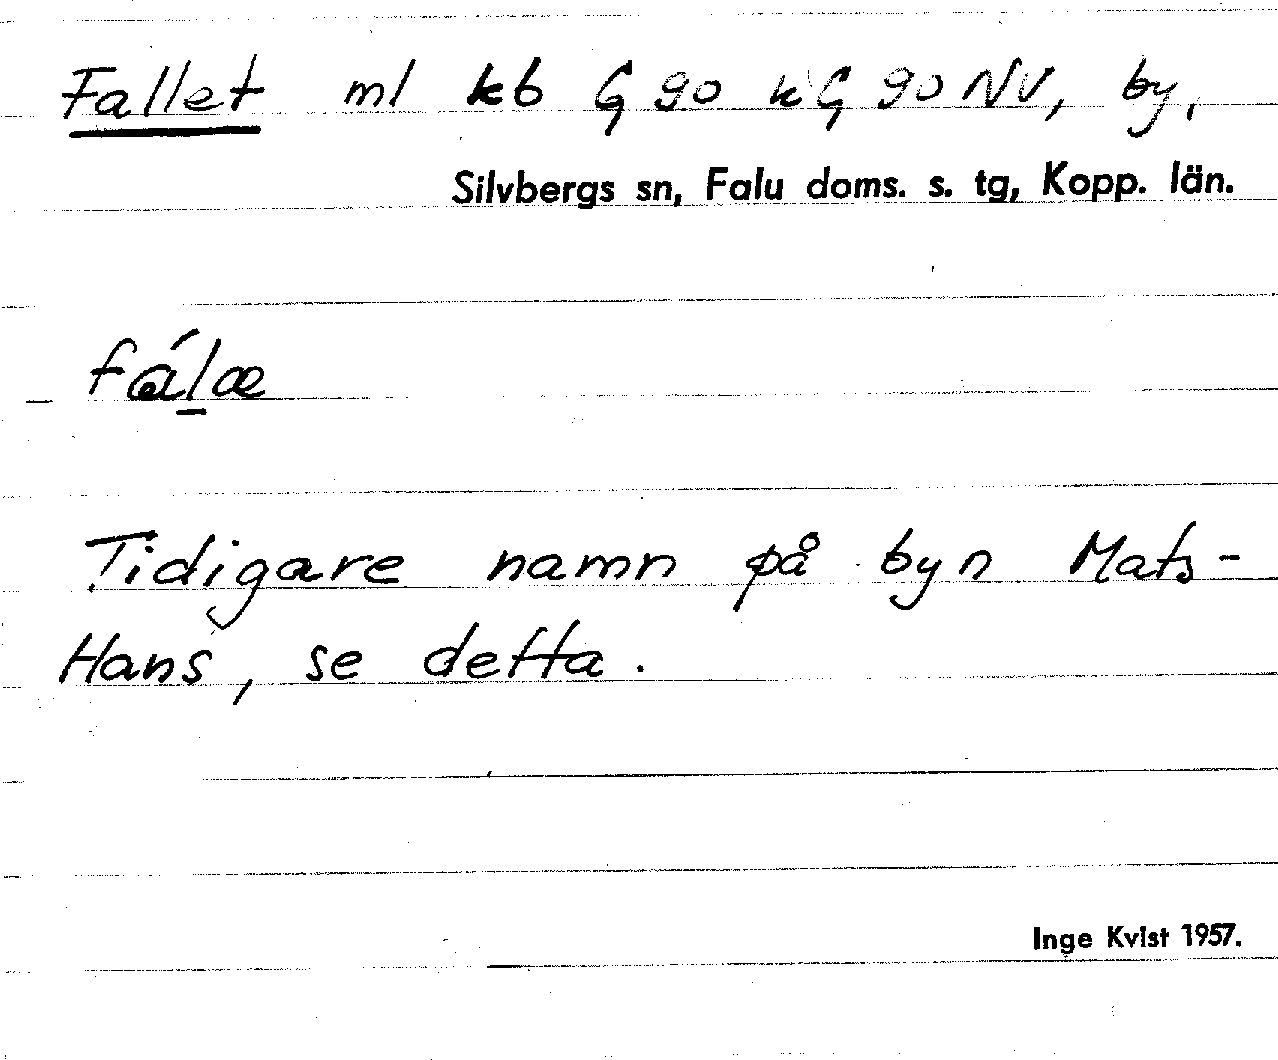 Fallet ml kb G 90 k G 90 NV, by,
Silvbergs sn, Falu doms. s. tg, Kopp. län.
Tidigare namn på byn Mats-
Hans, se detta.
Inge Kvist 1957.